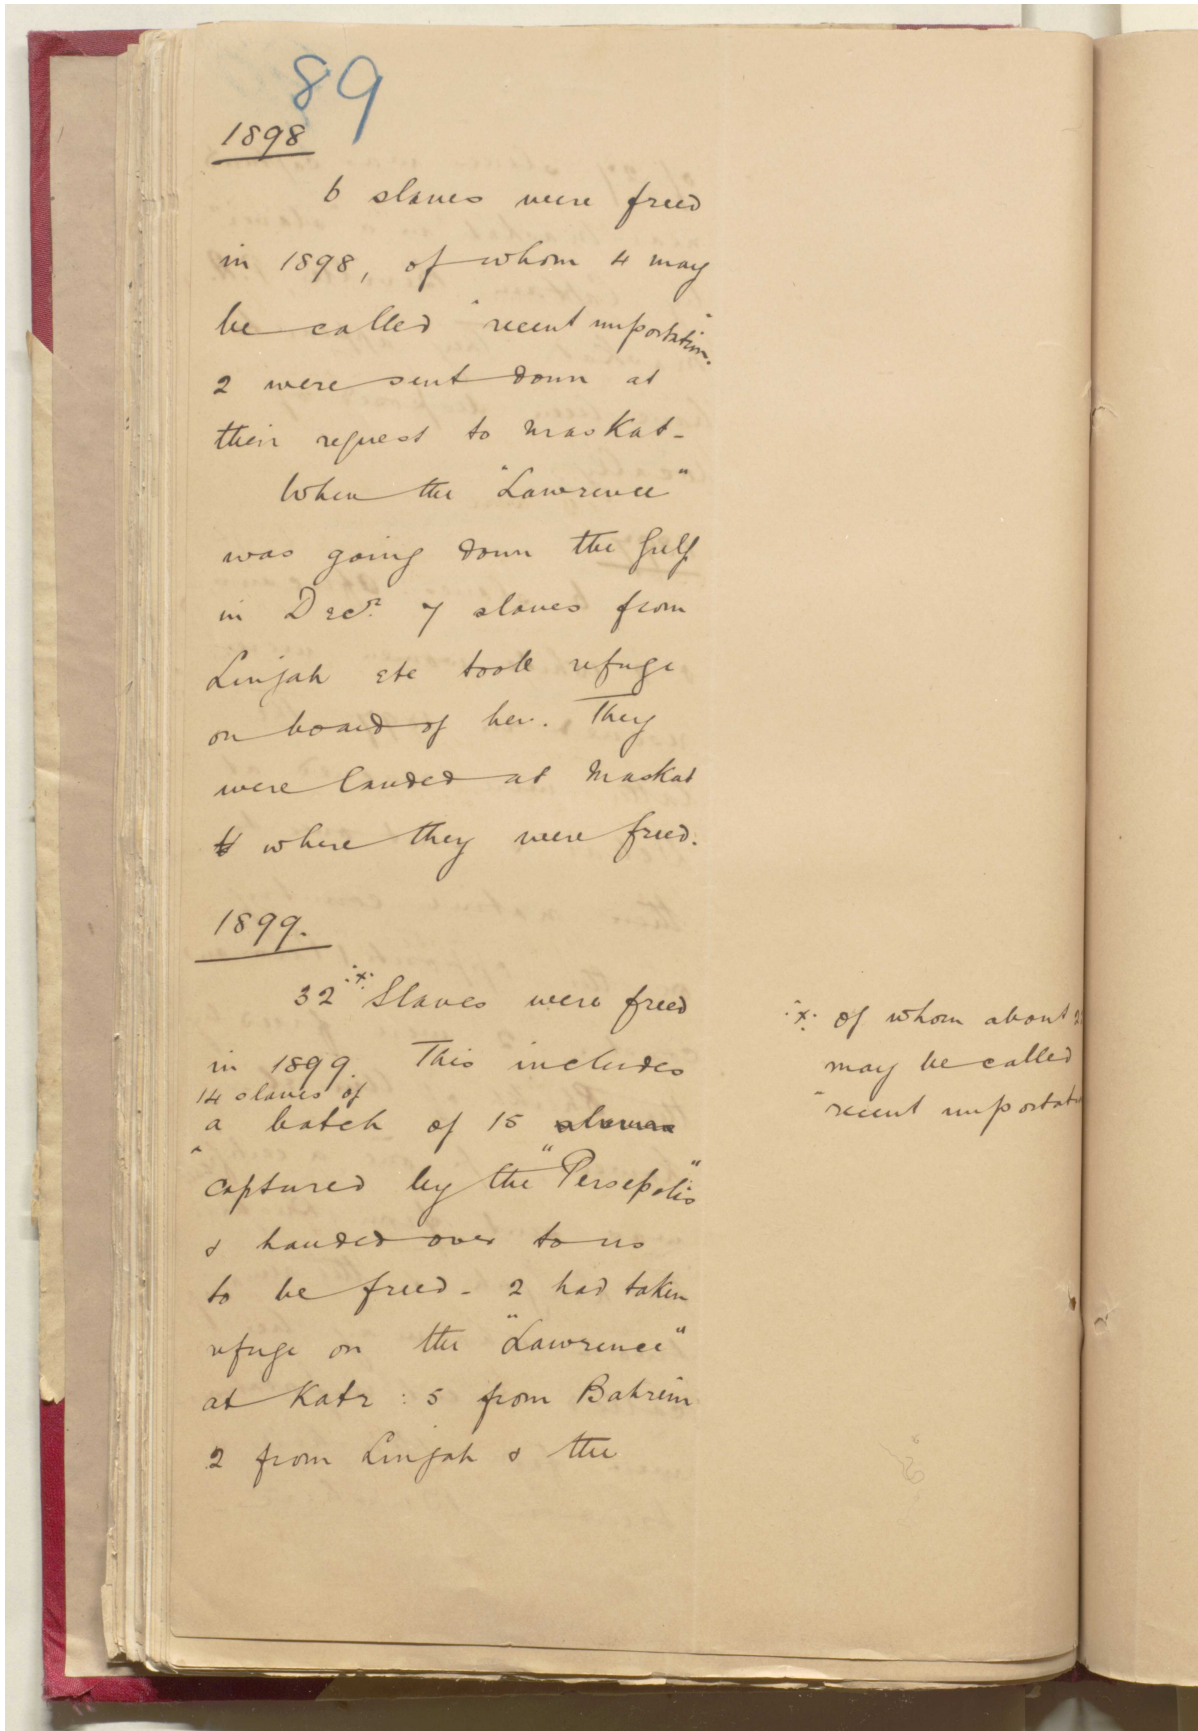 89
1898
6 slaves were freed
in 1898, of whom 4 may
be called "recent importation".
2 were sent down at
their request to Maskat -
When the "Lawrence"
was going down the Gulf
in Decr. 7 slaves from
Linjah etc took refuge
on board of her. They
were landed at Maskat
where they were freed.
1899.
32 ※ Slaves were freed
in 1899. This includes
14 slaves of
a batch of 15 slaves
captured by the "Persepolis"
& handed over to us
to be freed - 2 had taken
refuge on the "Lawrence"
at Katr : 5 from Bahrein
2 from Linjah & the
※ of whom about
may be called
"recent importat